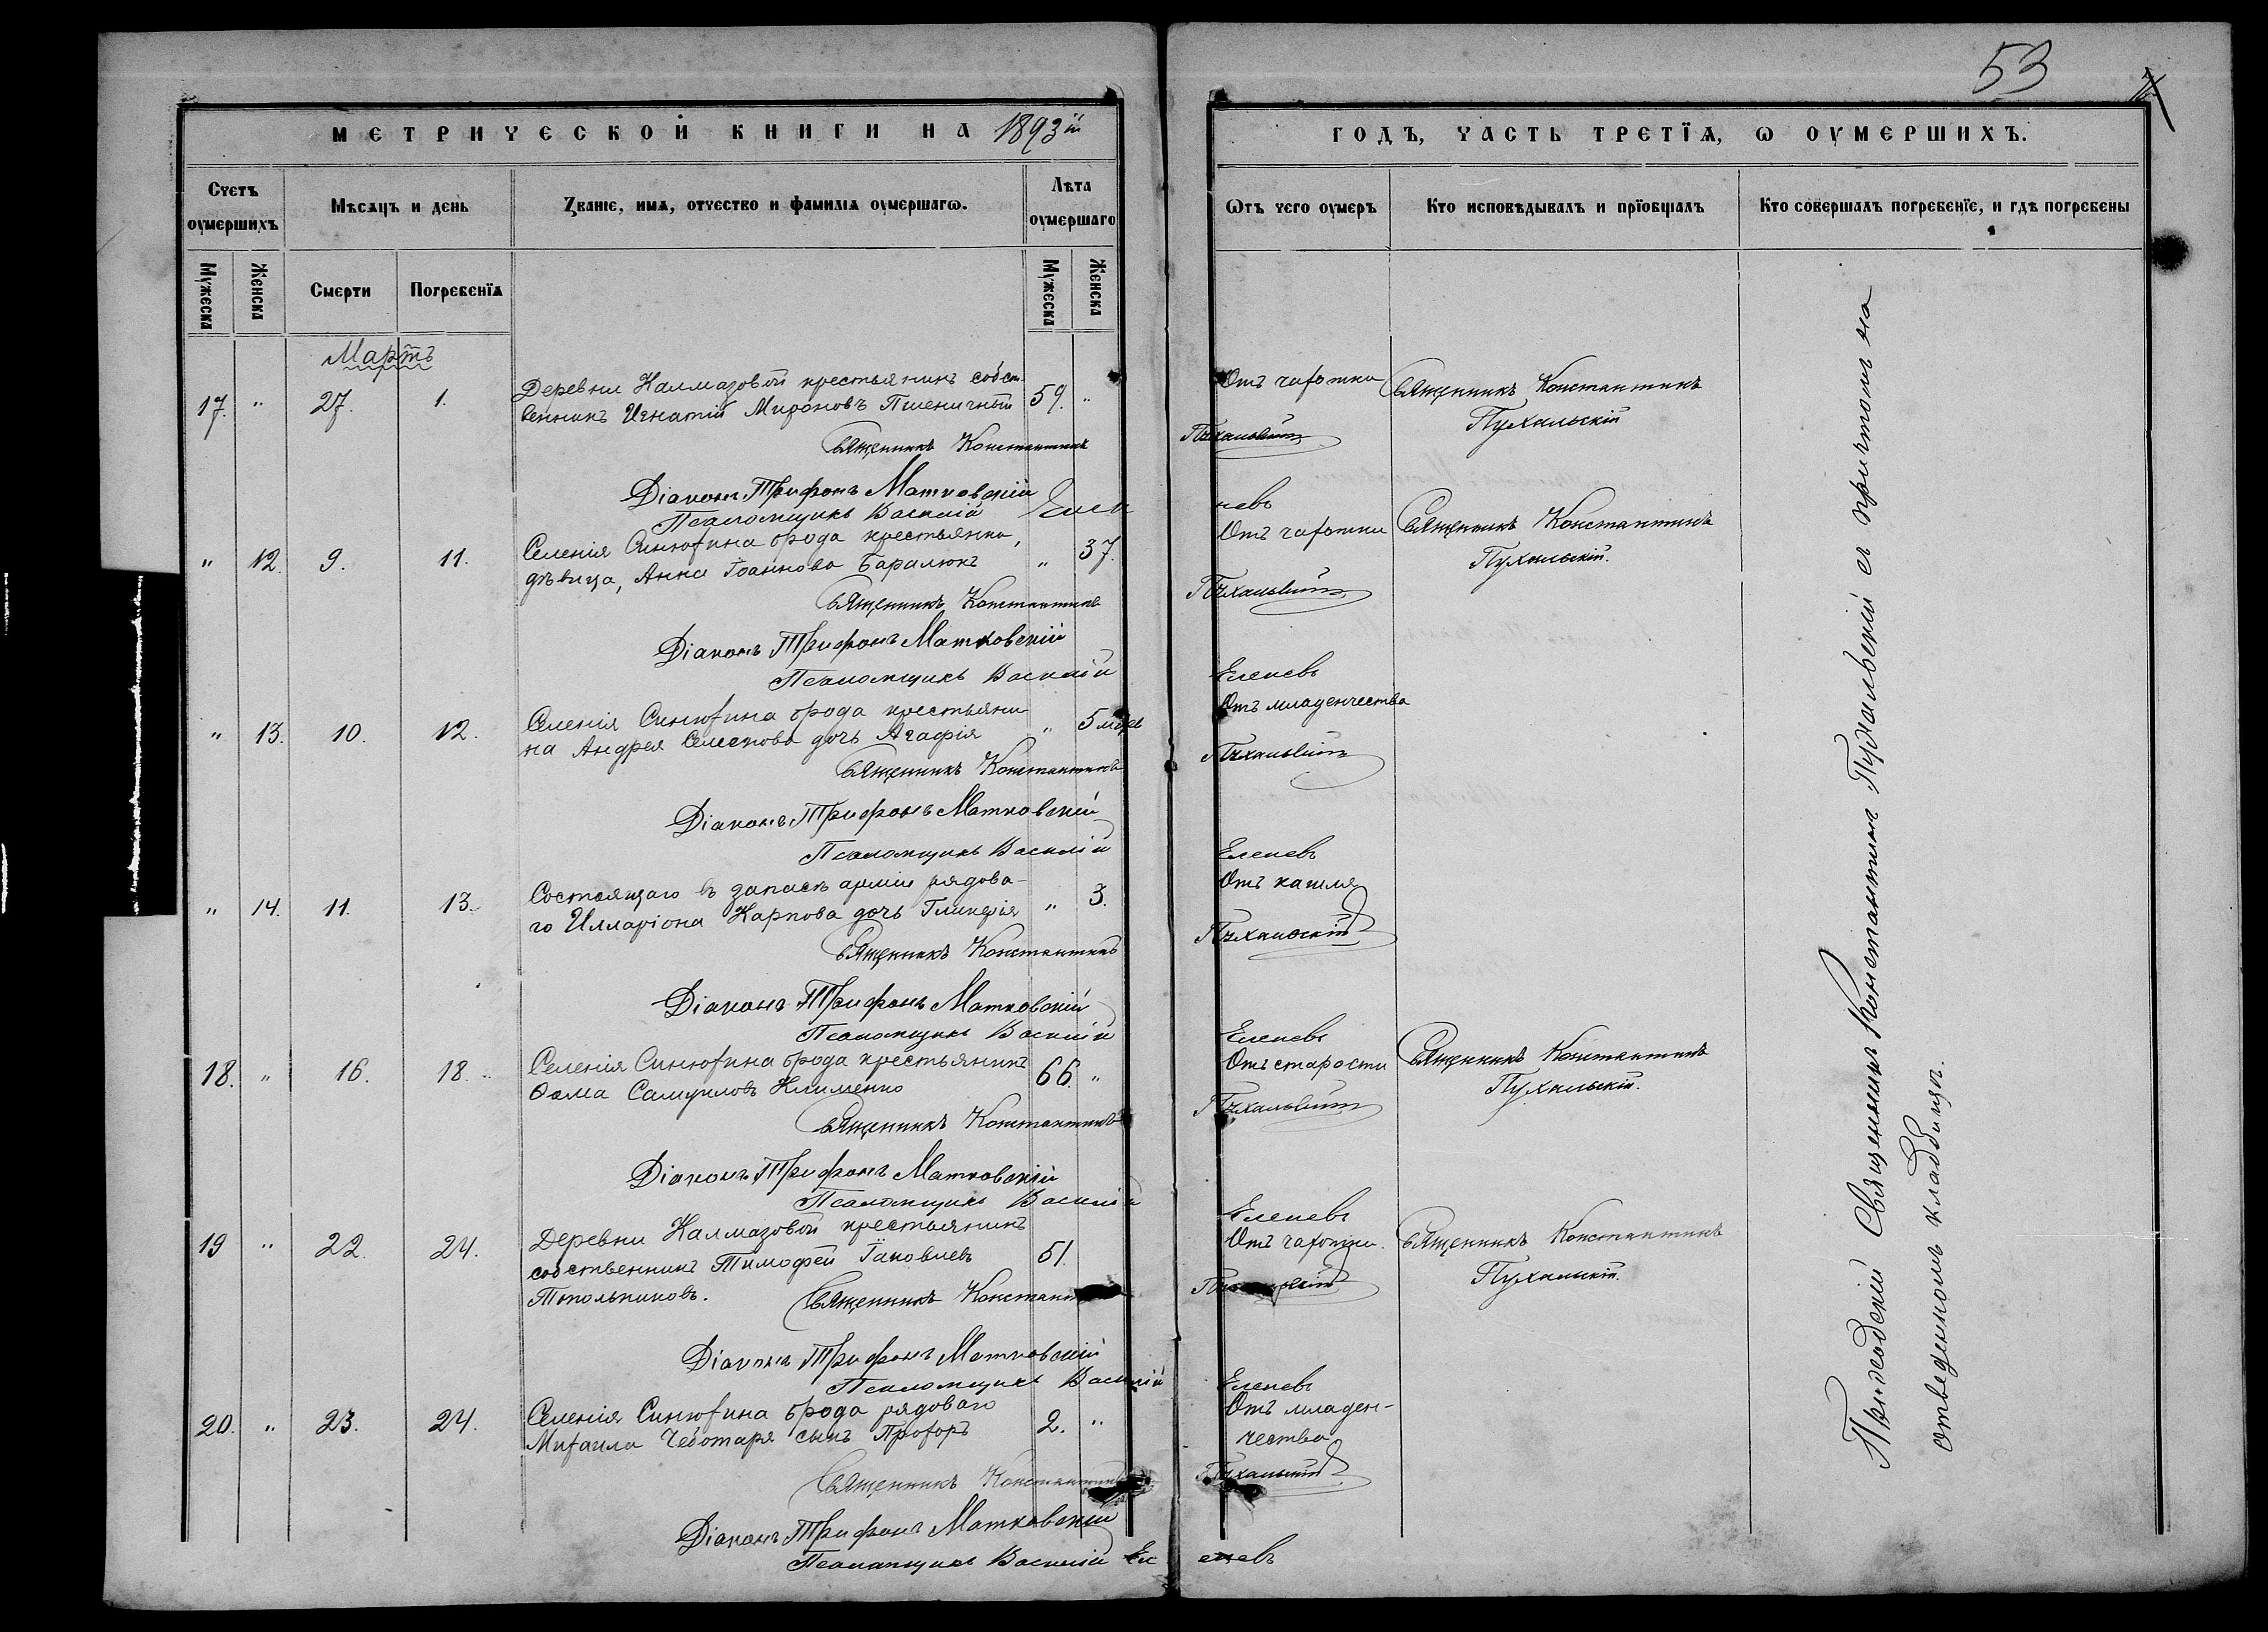 53
МЕТРИЧЕСКОЙ КНИГИ НА 1893й ГОДЪ, ЧАСТЬ ТРЕТІѦ, Ѡ ОУМЕРШИХЪ.
Счетъ оумершихъ
Мѣсяцъ и день
Званіе, имѧ, отчество и фамиліѧ оумершагѡ.
Лѣта оумершаго
Ѡтъ чего оумеръ
Кто исповѣдывалъ и пріобщалъ
Кто совершалъ погребеніе, и гдѣ погребены
Мужеска
Женска
Смерти
Погребеніѧ
Мужеска
Женска
Мартъ
17. " 27. 1. Деревни Калмазовой крестьянинъ собст- Отъ чахотки Священникъ Константинъ
венникъ Игнатій Мироновъ Пшеничный 59. " Пухальскій
Священникъ Константинъ Пухальскій
Діаконъ Трифонъ Матковскій
Псаломщикъ Василій Еленевъ
" 12. 9. 11. Селенія Синюхина брода крестьянка, Отъ чахотки Священникъ Константинъ
дѣвица, Анна Іоаннова Баралюкъ " 37. Пухальскій.
Священникъ Константинъ Пухальскій
Діаконъ Трифонъ Матковскій
Псаломщикъ Василій Еленевъ
" 13. 10. 12. Селенія Синюхина брода крестьяни- Отъ младенчества
на Андрея дочь Агафія " 5
Священникъ Константинъ Пухальскій
Діаконъ Трифонъ Матковскій
Псаломщикъ Василій Еленевъ
" 14. 11. 13. Состоящаго въ запасѣ арміи рядова- Отъ кашля
го Илларіона Карпова дочь Гликерія " 3.
Священникъ Константинъ Пухальскій
Діаконъ Трифонъ Матковскій
Псаломщикъ Василій Еленевъ
18. " 16. 18. Селенія Синюхина брода крестьянинъ Отъ старости Священникъ Константинъ
Ѳома Самуиловъ Клименко 66. " Пухальскій.
Священникъ Константинъ Пухальскій
Діаконъ Трифонъ Матковскій
Псаломщикъ Василій Еленевъ
19 " 22. 24. Деревни Калмазовой крестьянинъ Отъ чахотки. Священникъ Константинъ
собственникъ Тимофей Іаковлевъ 51. Пухальскій.
Топольниковъ. Священникъ Константинъ Пухальскій
Діаконъ Трифонъ Матковскій
Псаломщикъ Василій Еленевъ
20. " 23. 24. Селенія Синюхина брода рядоваго Отъ младен-
Михаила Чеботаря сынъ Прохоръ 2. " чества
Священникъ Константинъ Пухальскій
Діаконъ Трифонъ Матковскій
Псаломщикъ Василій Еленевъ
Приходскій Священникъ Константинъ Пухальскій съ причтомъ на
отведенномъ кладбищѣ.